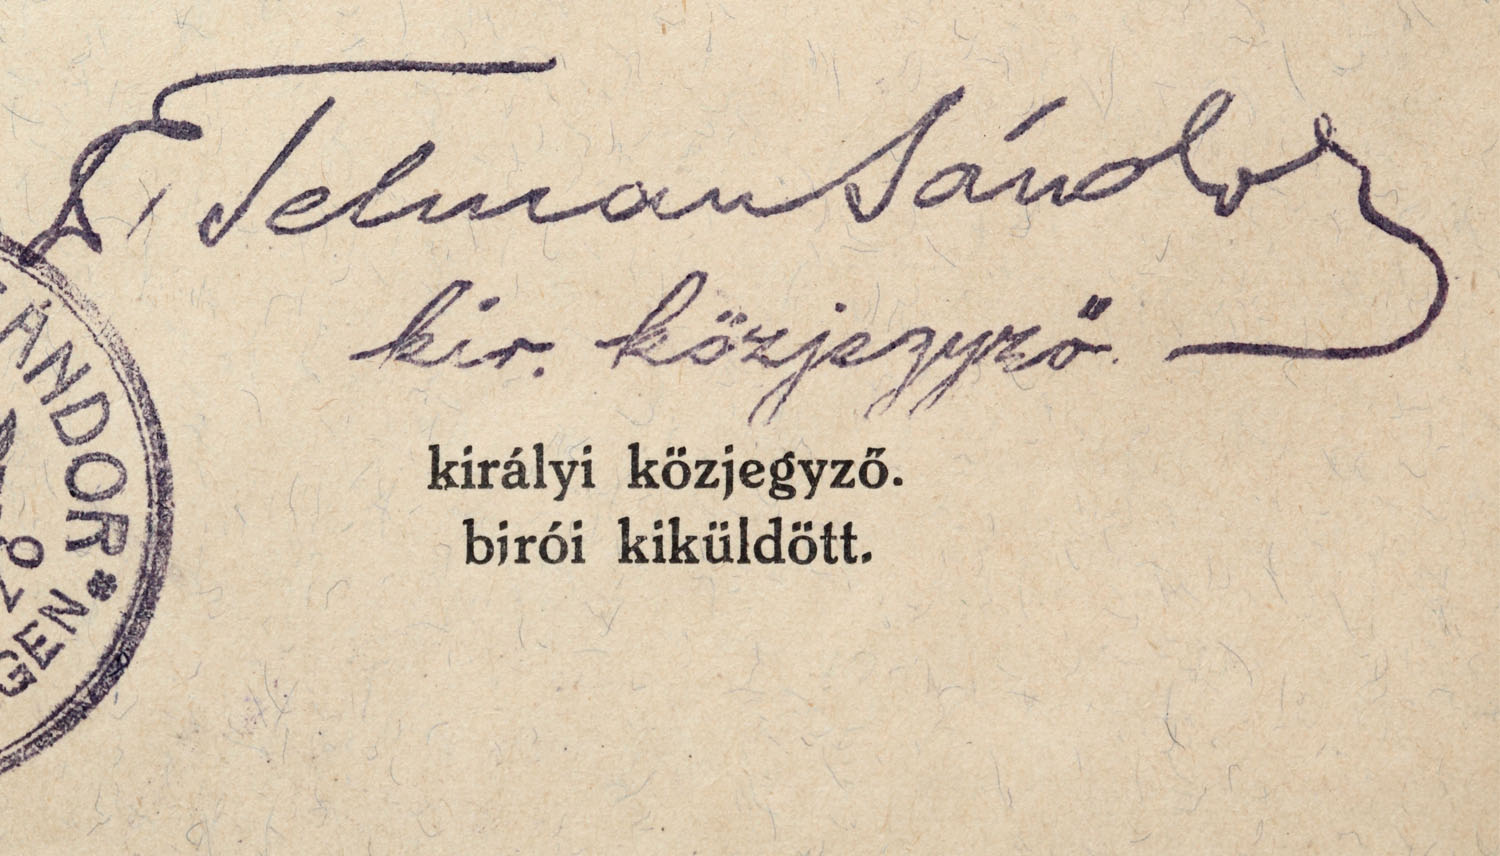 Dr. Telman Sándor
kir. közjegyző
királyi közjegyző.
birói kiküldött.
ÁNDOR *
ZO
GEN